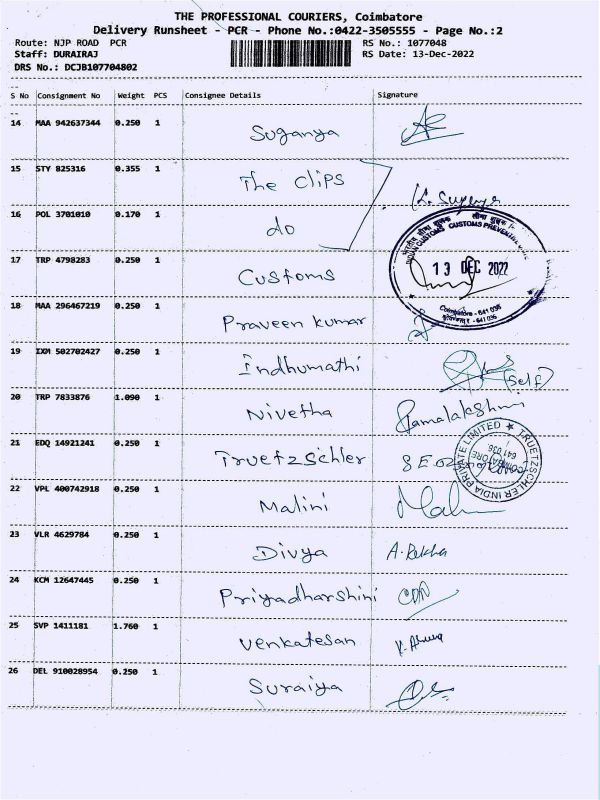 THE PROFESSIONAL COURIERS, Coimbatore
Delivery Runsheet - PCR - Phone No.:0422-3505555 - Page No.:2
Route: NJP ROAD PCR RS No.: 1077048
Staff: DURAIRAJ RS Date: 13-Dec-2022
DRS No.: DCJB107704802
S No Consignment No Weight PCS Consignee Details Signature
14 MAA 942637344 0.250 1 Suganya
15 STY 825316 0.355 1 The Clips
16 POL 3701010 0.170 1 do
17 TRP 4798283 0.250 1 Customs
INDIAN CUSTOMS CUSTOMS PREVENTIVE
13 DEC 2022
Coimbatore - 641 036
18 MAA 296467219 0.250 1 Praveen kumar
19 IXM 502702427 0.250 1 Indhumathi (Self)
20 TRP 7833876 1.090 1 Nivetha Ramalakshmi
21 EDQ 14921241 0.250 1 Truetzschler
TRUETZSCHLER INDIA PRIVATE LIMITED ★
COIMBATORE
641 036
22 VPL 400742918 0.250 1 Malini
23 VLR 4629784 0.250 1 Divya A. Rekha
24 KCM 12647445 0.250 1 Priyadharshini
25 SVP 1411181 1.760 1 Venkatesan
26 DEL 910028954 0.250 1 Suraiya